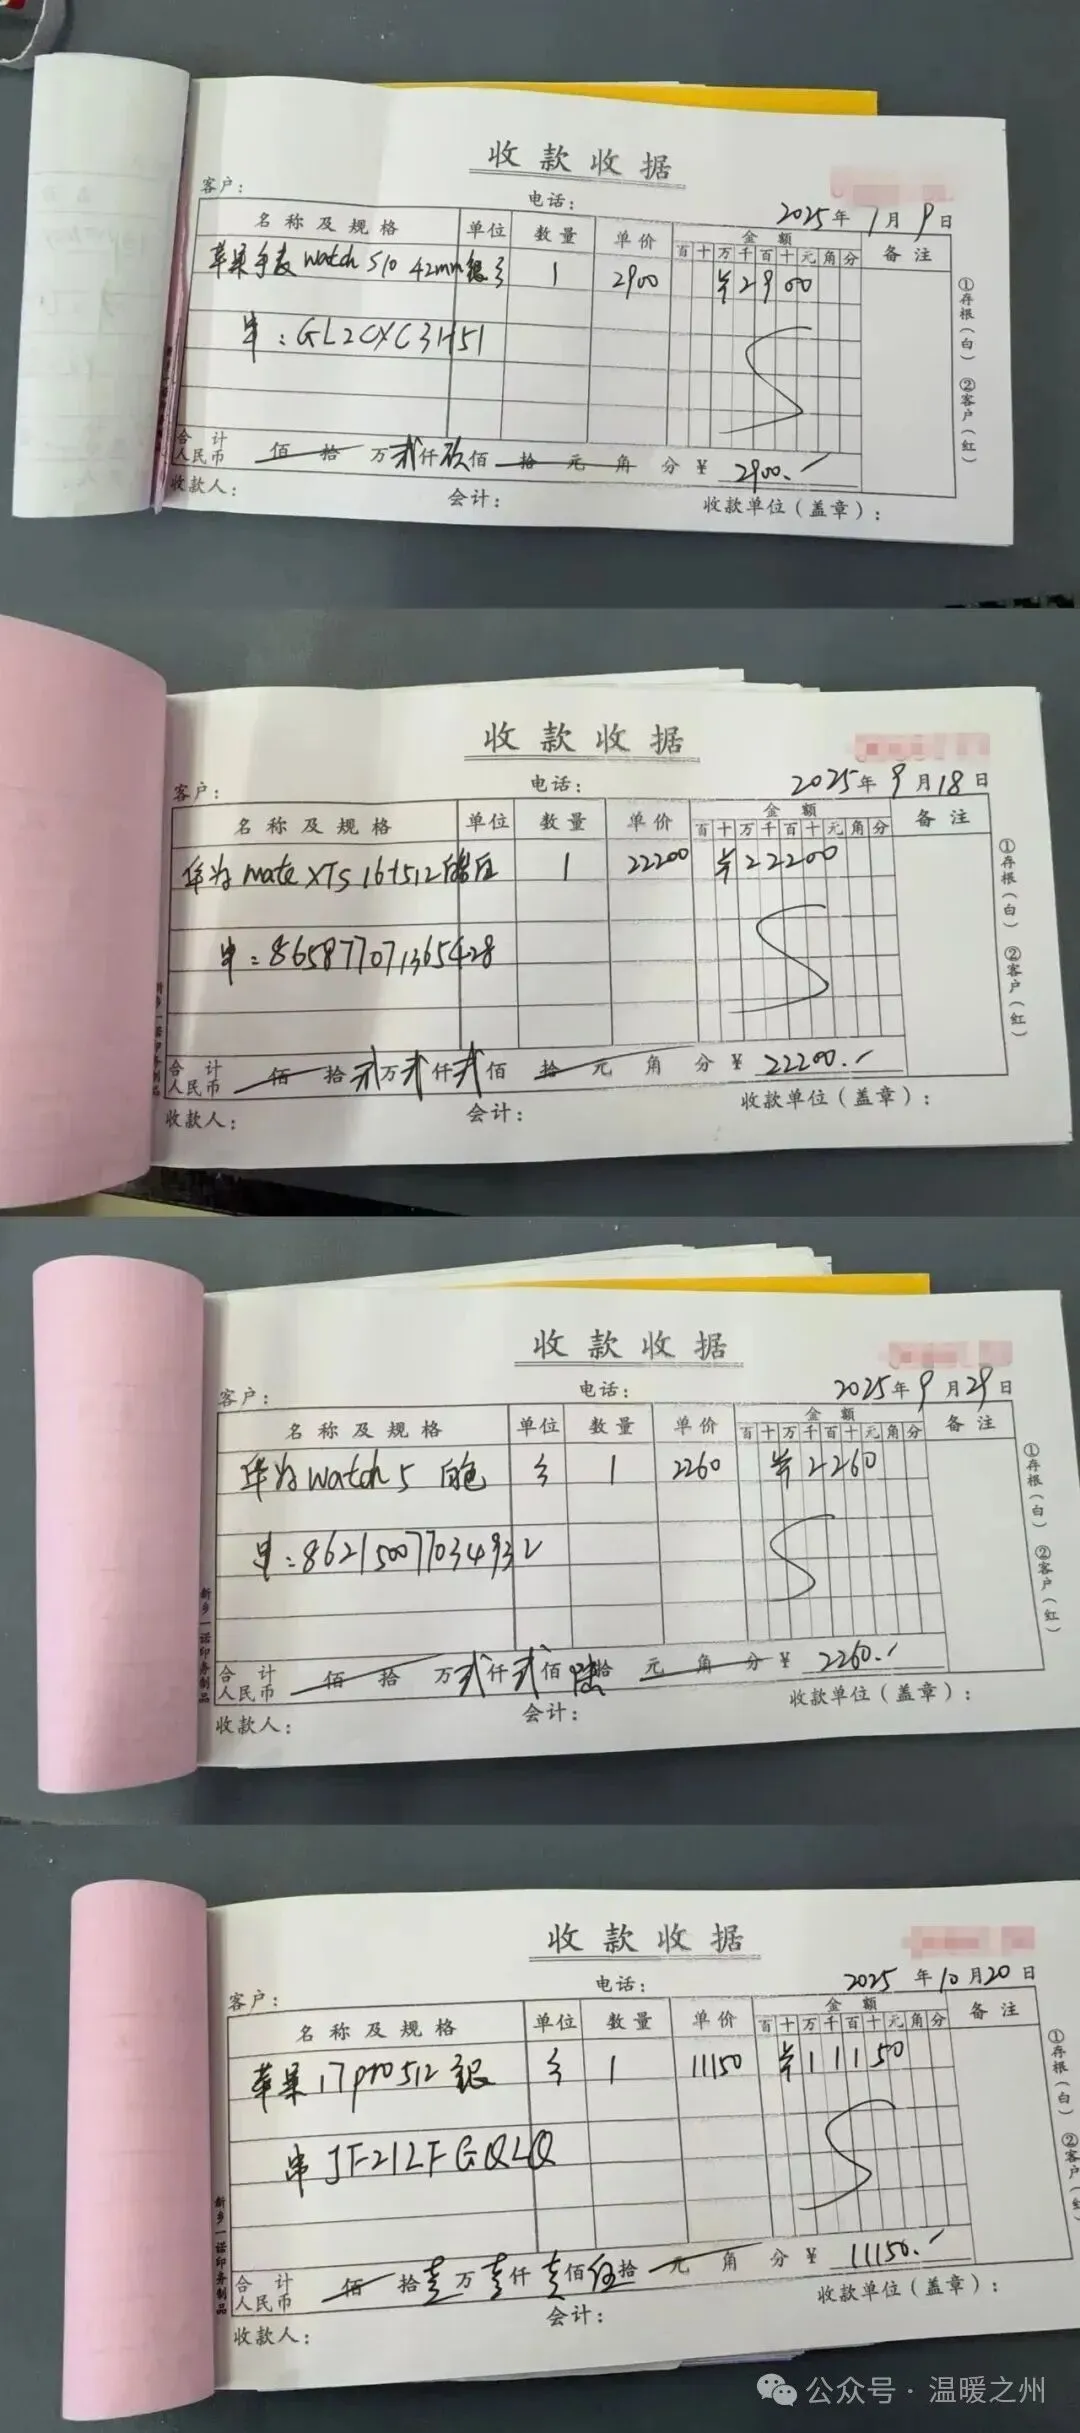 收款收据
客户： 电话： 2025年1月9日
名称及规格 单位 数量 单价 金额 备注
百十万千百十元角分
苹果手表 watch S10 42mm 银 个 1 2900 ¥2900
串：GL2CXC3H51
合计人民币 佰 拾 万 贰仟玖佰 拾 元 角 分 ¥ 2900.-
收款人： 会计： 收款单位（盖章）：
①存根（白） ②客户（红）
收款收据
客户： 电话： 2025年9月18日
名称及规格 单位 数量 单价 金额 备注
百十万千百十元角分
华为 mate XTS 16+512 1 22200 ¥22200
串：865877071365428
合计人民币 佰 拾贰万贰仟贰佰 拾 元 角 分 ¥ 22200.-
收款人： 会计： 收款单位（盖章）：
①存根（白） ②客户（红）
新乡一诺印务制品
收款收据
客户： 电话： 2025年9月29日
名称及规格 单位 数量 单价 金额 备注
百十万千百十元角分
华为 watch 5 白色 个 1 2260 ¥2260
串：862150077034932
合计人民币 佰 拾 万贰仟贰佰陆拾 元 角 分 ¥ 2260.-
收款人： 会计： 收款单位（盖章）：
①存根（白） ②客户（红）
新乡一诺印务制品
收款收据
客户： 电话： 2025年10月20日
名称及规格 单位 数量 单价 金额 备注
百十万千百十元角分
苹果 17 pro 512 银 个 1 11150 ¥11150
串 JF21LFGQLQ
合计人民币 佰 拾壹万壹仟壹佰伍拾 元 角 分 ¥ 11150.-
收款人： 会计： 收款单位（盖章）：
①存根（白） ②客户（红）
新乡一诺印务制品
公众号·温暖之州